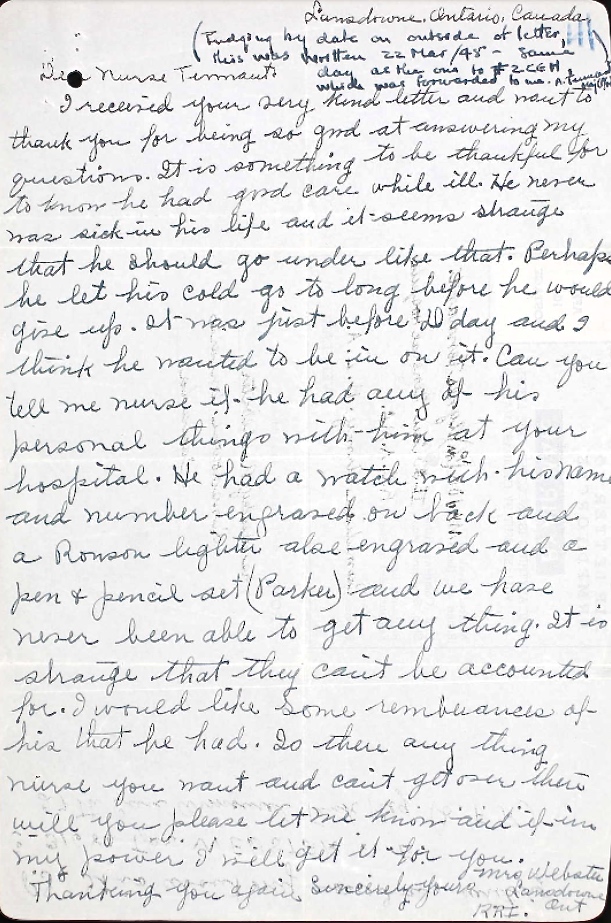 Lansdowne, Ontario, Canada
(Judging by date on outside of letter,
this was written 22 Mar/45 - same
day as the one to #2 CGH
which was forwarded to me. A.
Dear Nurse
I received your very kind letter and want to
thank you for being so good at answering my
questions. It is something to be thankful for
to know he had good care while ill. He never
was sick in his life and it seems strange
that he should go under like that. Perhaps
he let his cold go to long before he would
give up. It was just before D day and I
think he wanted to be in on it. Can you
tell me nurse if he had any of his
personal things with him at your
hospital. He had a watch with his name
and number engraved on back and
a Ronson lighter also engraved and a
pen & pencil set (Parker) and we have
never been able to get any thing. It is
strange that they can't be accounted
for. I would like some rememberances of
his that he had. Is there any thing
nurse you want and can't get over there
will you please let me know and if in
my power I will get it for you.
Thanking you again Sincerely yours
Mrs Webster
Lansdowne
Ont